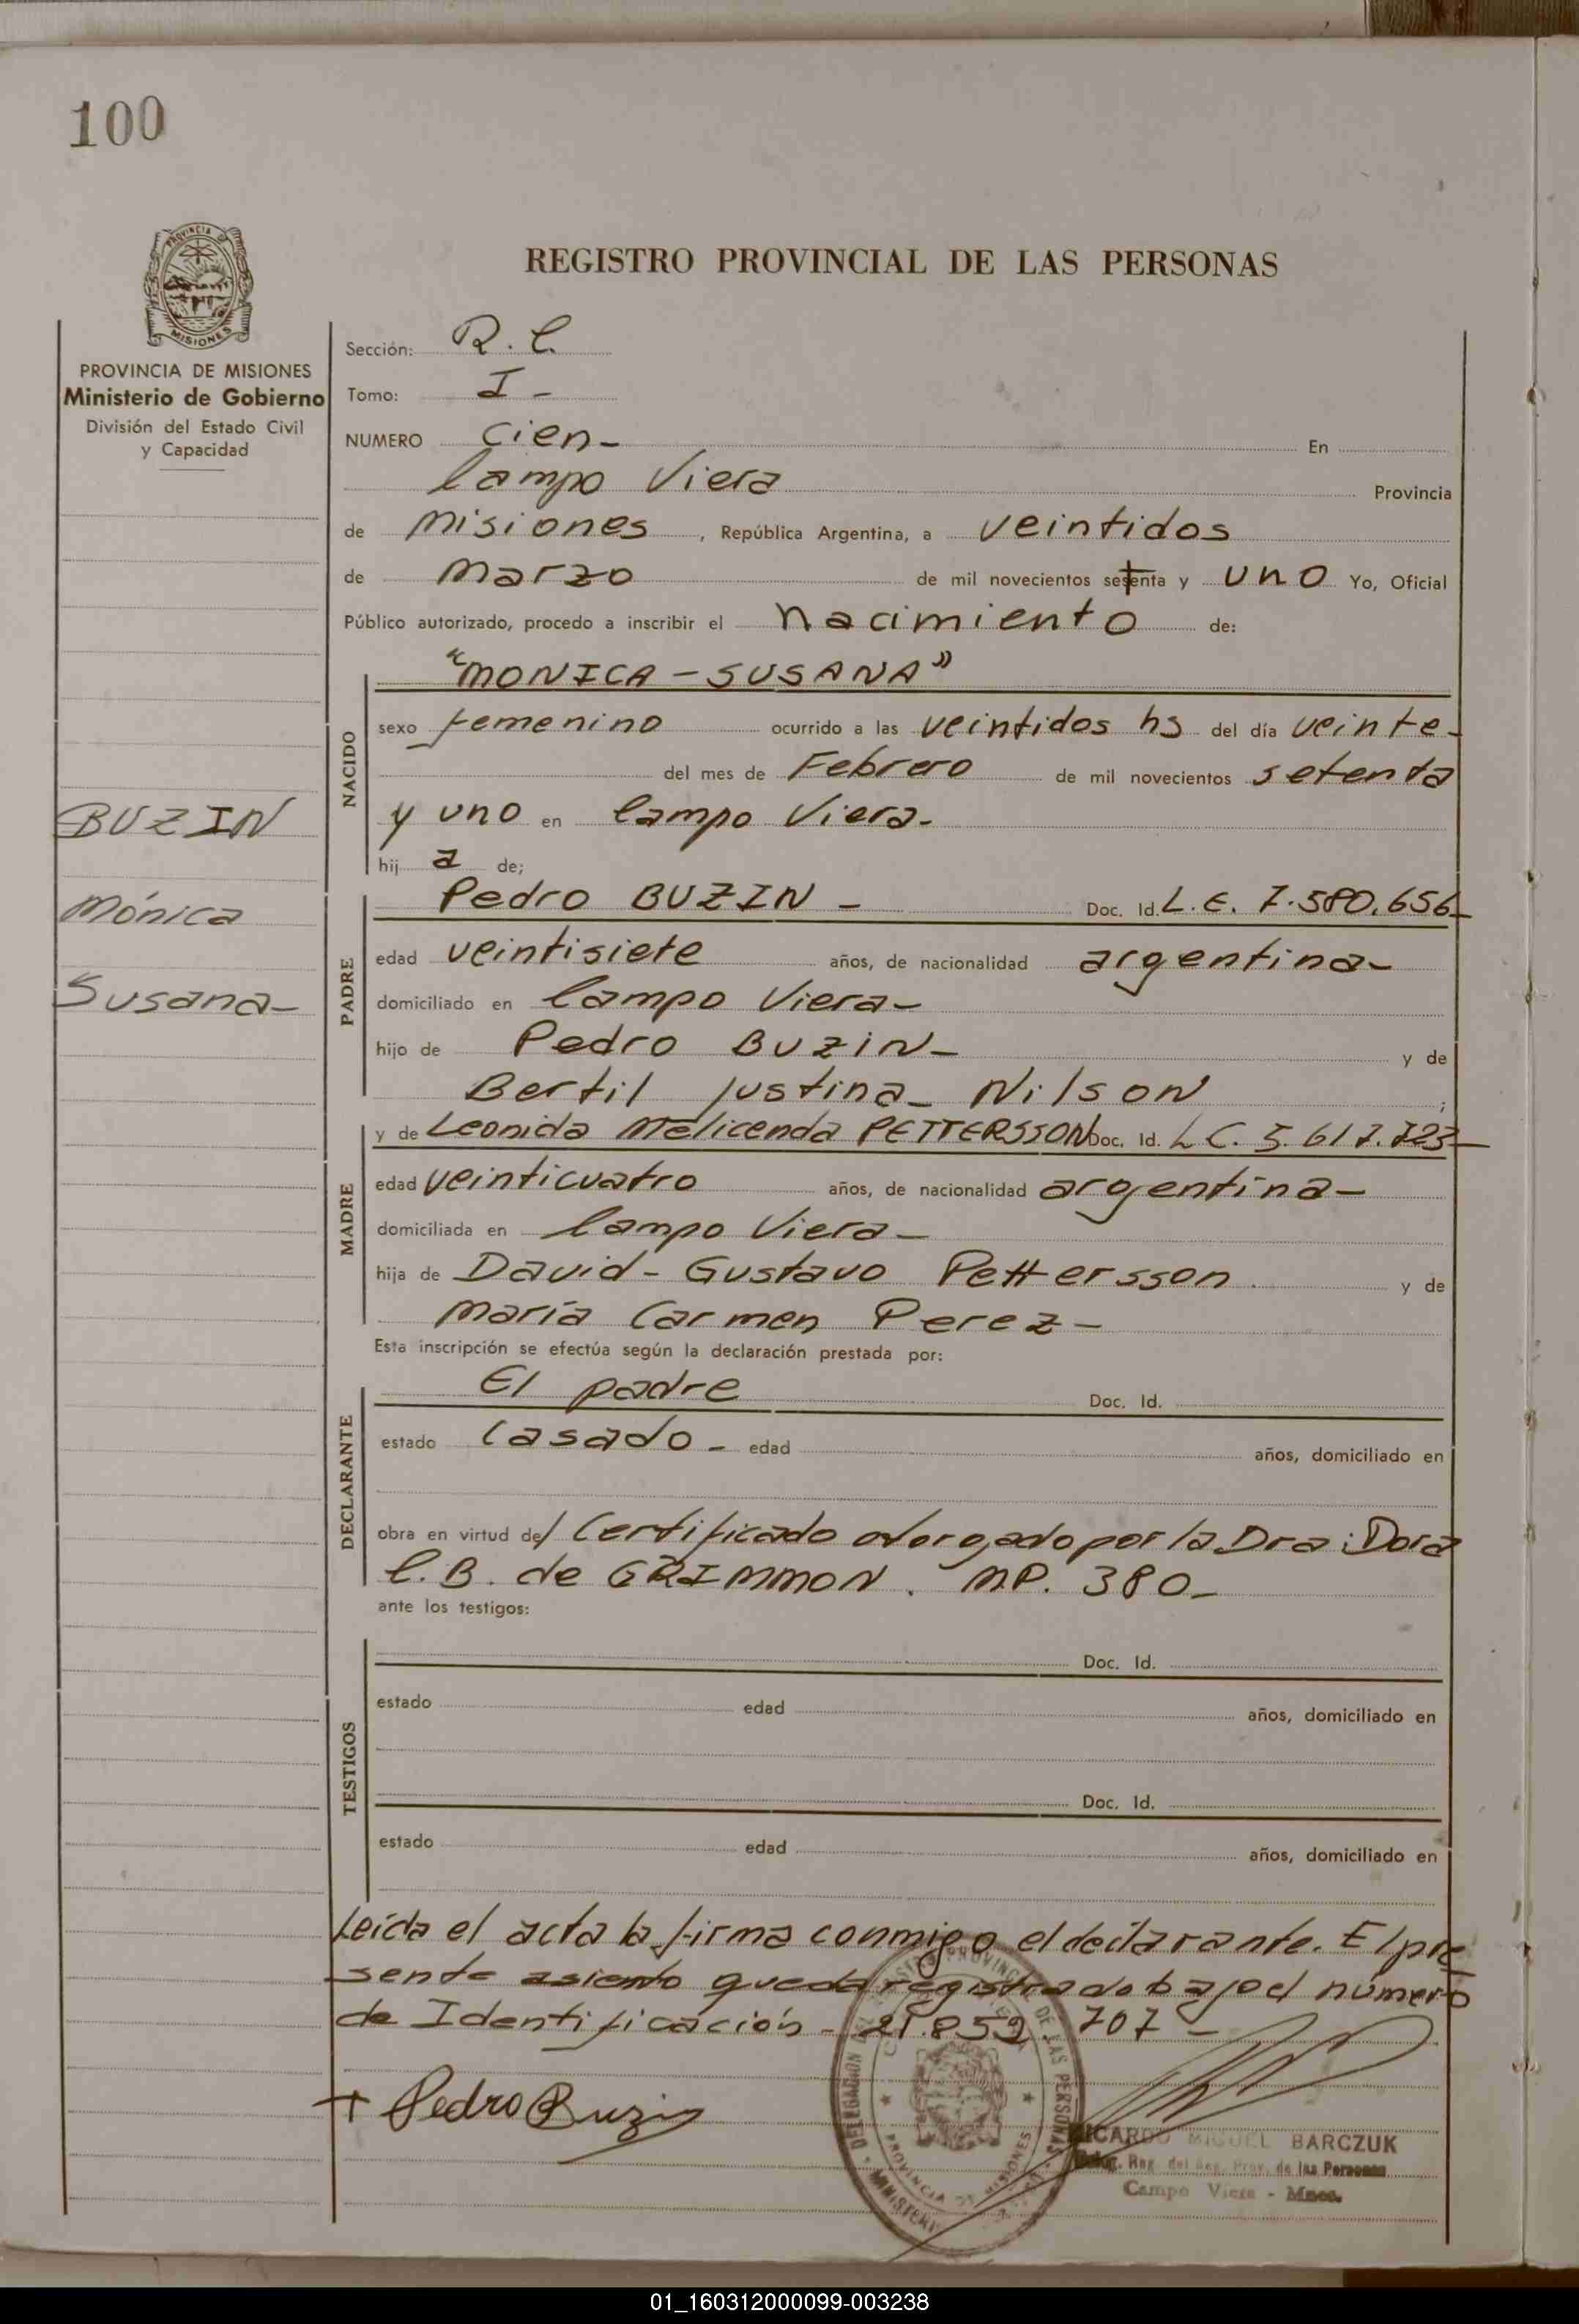 100
PROVINCIA DE
MISIONES
REGISTRO PROVINCIAL DE LAS PERSONAS
PROVINCIA DE MISIONES
Ministerio de Gobierno
División del Estado Civil
y Capacidad
BUZIN
Mónica
Susana-
Sección: R. C.
Tomo: I -
NUMERO Cien- En
Campo Viera Provincia
de Misiones, República Argentina, a veintidos
de Marzo de mil novecientos setenta y uno Yo, Oficial
Público autorizado, procedo a inscribir el Nacimiento de:
NACIDO
"MONICA - SUSANA"
sexo femenino ocurrido a las veintidos hs del día veinte-
del mes de Febrero de mil novecientos setenta
y uno en Campo Viera-
hij a de;
PADRE
Pedro BUZIN - Doc. Id. L. E. 7.580.656-
edad veintisiete años, de nacionalidad argentina-
domiciliado en Campo Viera-
hijo de Pedro BUZIN- y de
Bertil Justina- Nilson ;
MADRE
y de Leonida Melicenda PETTERSSON Doc. Id. L C. 5.617.723-
edad veinticuatro años, de nacionalidad argentina-
domiciliada en Campo Viera-
hija de David- Gustavo Pettersson y de
María Carmen Perez-
Esta inscripción se efectúa según la declaración prestada por:
DECLARANTE
El padre Doc. Id.
estado Casado- edad años, domiciliado en
obra en virtud del Certificado otorgado por la Dra: Dora
C. B. de GRIMMON. M.P. 380-
ante los testigos:
TESTIGOS
Doc. Id.
estado edad años, domiciliado en
Doc. Id.
estado edad años, domiciliado en
Leída el acta la firma conmigo el declarante. El pre
sente asiento queda registrado bajo el número
de Identificación - 21.852.707 -
+ Pedro Buzin
PROVINCIAL DE LAS PERSONAS
PROVINCIA DE MISIONES
RICARDO MIGUEL BARCZUK
Deleg. Reg. del Reg. Prov. de las Personas
Campo Viera - Mnes.
01_160312000099-003238